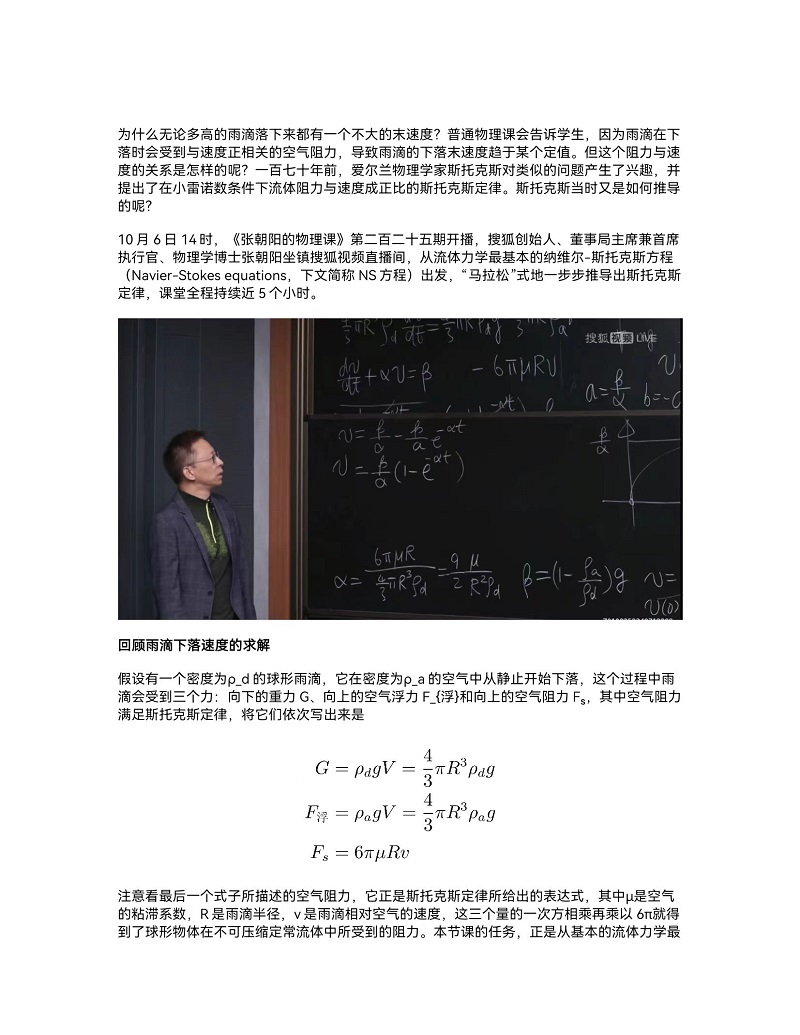 为什么无论多高的雨滴落下来都有一个不大的末速度？普通物理课会告诉学生，因为雨滴在下
落时会受到与速度正相关的空气阻力，导致雨滴的下落末速度趋于某个定值。但这个阻力与速
度的关系是怎样的呢？一百七十年前，爱尔兰物理学家斯托克斯对类似的问题产生了兴趣，并
提出了在小雷诺数条件下流体阻力与速度成正比的斯托克斯定律。斯托克斯当时又是如何推导
的呢？
10 月 6 日 14 时，《张朝阳的物理课》第二百二十五期开播，搜狐创始人、董事局主席兼首席
执行官、物理学博士张朝阳坐镇搜狐视频直播间，从流体力学最基本的纳维尔-斯托克斯方程
（Navier-Stokes equations，下文简称 NS 方程）出发，“马拉松”式地一步步推导出斯托克斯
定律，课堂全程持续近 5 个小时。
搜狐视频 LIVE
dv/dt + αv = β
- 6πμRv
a = β/α b = -
v = β/α - β/α e^{-αt}
v = β/α (1 - e^{-αt})
β/α
α = 6πμR / (4/3 πR³ρ_d) = 9/2 μ/(R²ρ_d)
β = (1 - ρ_a/ρ_d) g
v =
v(0)
回顾雨滴下落速度的求解
假设有一个密度为ρ_d 的球形雨滴，它在密度为ρ_a 的空气中从静止开始下落，这个过程中雨
滴会受到三个力：向下的重力 G、向上的空气浮力 F_{浮}和向上的空气阻力 Fₛ，其中空气阻力
满足斯托克斯定律，将它们依次写出来是
G = ρ_d gV = 4/3 πR³ρ_d g
F_浮 = ρ_a gV = 4/3 πR³ρ_a g
F_s = 6πμRv
注意看最后一个式子所描述的空气阻力，它正是斯托克斯定律所给出的表达式，其中μ是空气
的粘滞系数，R 是雨滴半径，v 是雨滴相对空气的速度，这三个量的一次方相乘再乘以 6π就得
到了球形物体在不可压缩定常流体中所受到的阻力。本节课的任务，正是从基本的流体力学最